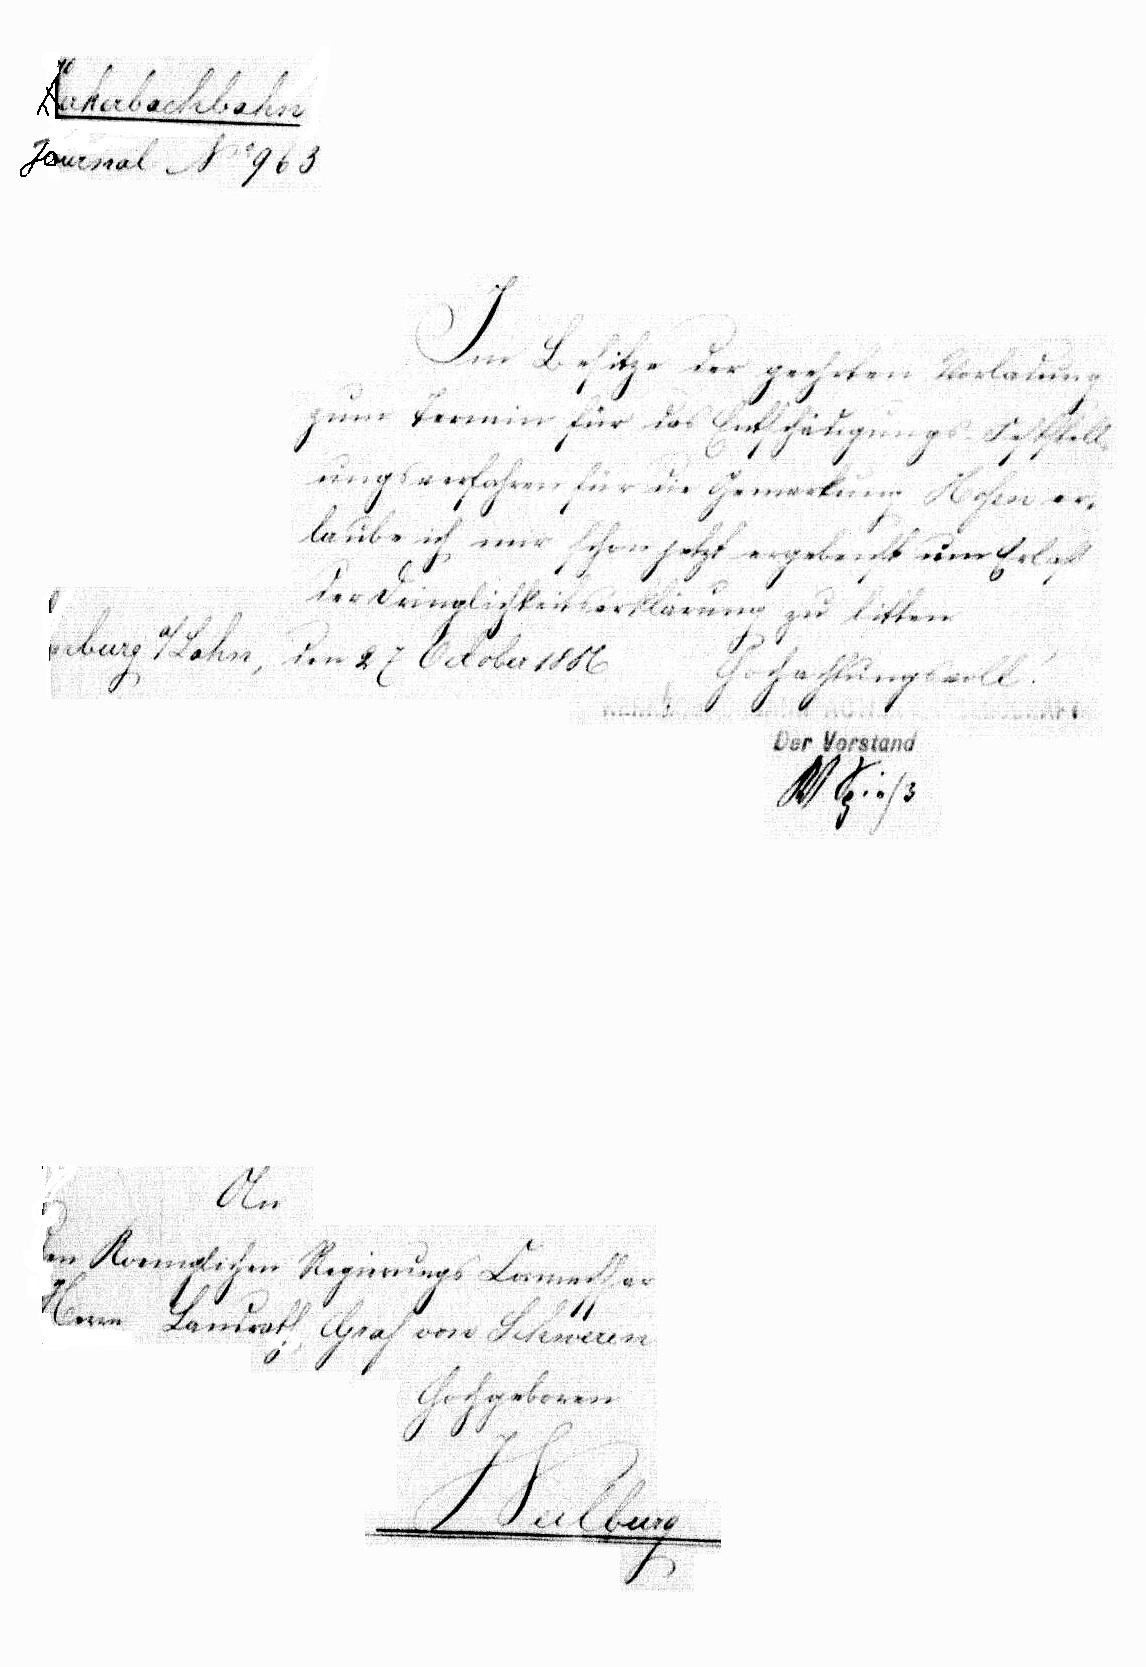 Kerkerbachbahn
Journal No 963
Im Besitze der geehrten Vorladung
zum Termin für das Entschädigungs-Feststell-
ungsverfahren für die Gemarkung Hofen er-
laube ich mir schon jetzt ergebenst um Erlaß
der Dringlichkeitserklärung zu bitten
burg a/Lahn, den 27 October 1886
Hochachtungsvoll!
Der Vorstand
W Spieß
An
den Koeniglichen Regierungs Commissar
Herrn Landrath, Graf von Schwerin
Hochgeboren
Weilburg